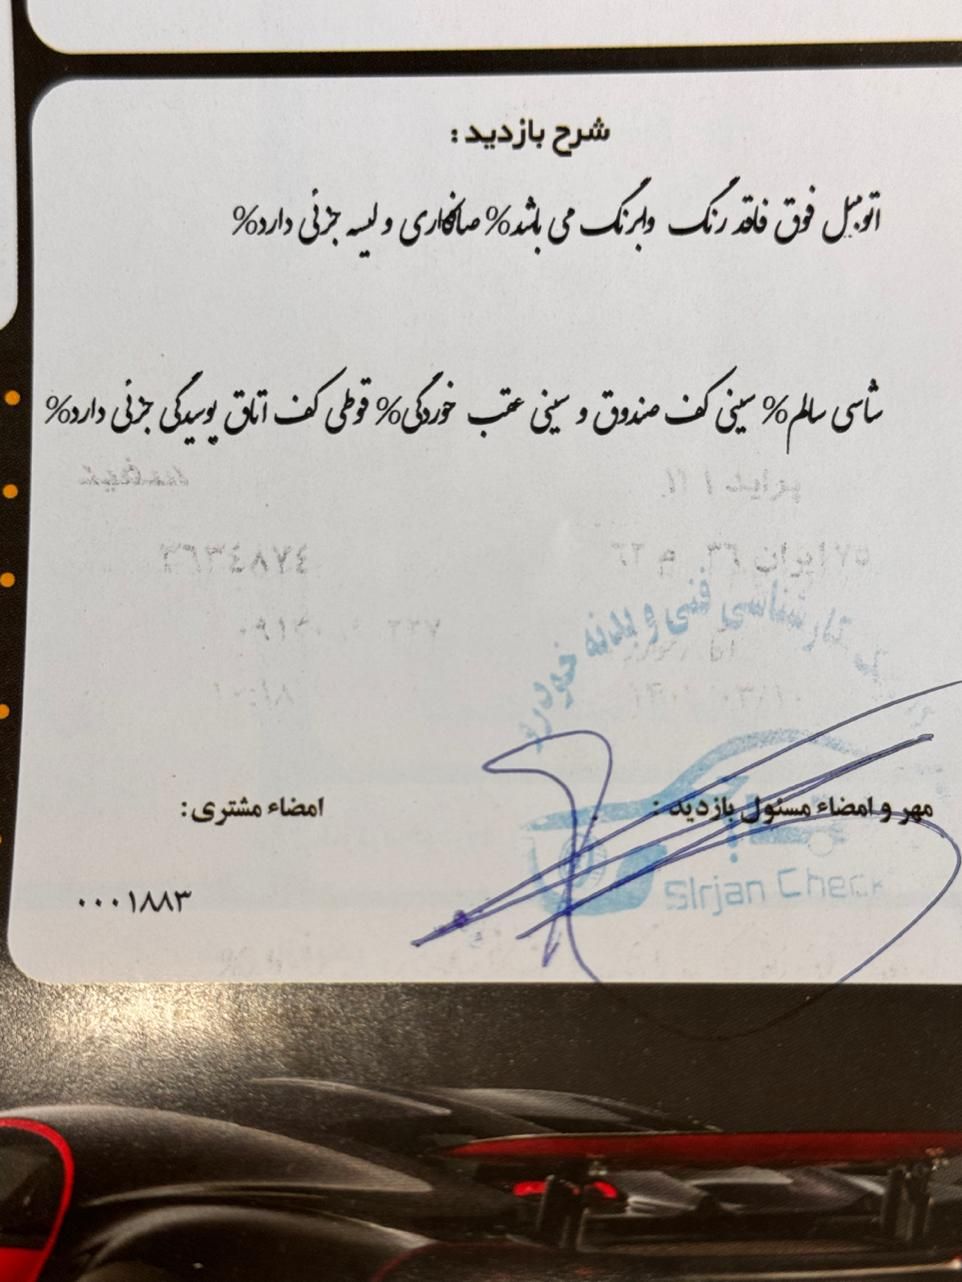 شرح بازدید :
اتومبیل فوق فاقد رنگ وابرنگ می باشد% صافکاری و لیسه جزئی دارد%
شاسی سالم% سینی کف صندوق و سینی عقب خوردگی% قوطی کف اتاق پوسیدگی جزئی دارد%
کارشناسی فنی و بدنه خودرو
مهر و امضاء مسئول بازدید :
امضاء مشتری :
Sirjan Check
۰۰۰۱۸۸۳